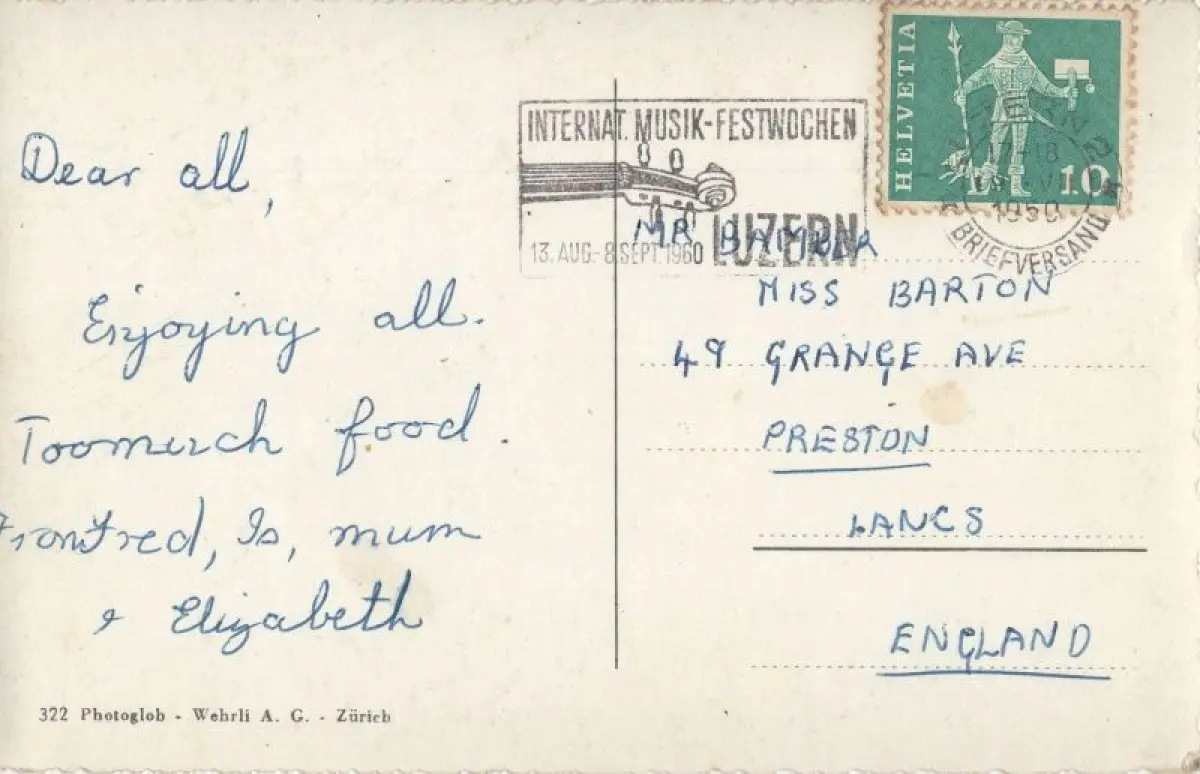 Dear all,
Enjoying all.
Toomuch food.
from Fred, Is, mum
& Elizabeth
322 Photoglob - Wehrli A. G. - Zürich
INTERNAT. MUSIK-FESTWOCHEN
LUZERN
13. AUG.-8.SEPT.1960
HELVETIA
10
LUZERN 2
17-18
1960
BRIEFVERSAND
MR
MISS BARTON
49 GRANGE AVE
PRESTON
LANCS
ENGLAND